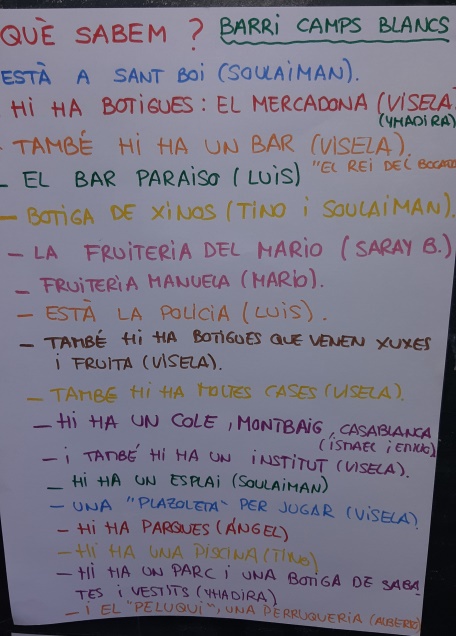 QUÈ SABEM ? BARRI CAMPS BLANCS
ESTÀ A SANT BOI (SOULAIMAN).
HI HA BOTIGUES: EL MERCADONA (VISELA
(YHADIRA)
- TAMBÉ HI HA UN BAR (VISELA).
"EL REI DEL BOCATA
- EL BAR PARAISO (LUIS)
- BOTIGA DE XINOS (TINO i SOULAIMAN).
- LA FRUITERIA DEL MARIO (SARAY B.)
- FRUITERIA MANUELA (MARIO).
- ESTÀ LA POLICIA (LUIS).
- TAMBÉ HI HA BOTIGUES QUE VENEN XUXES
i FRUITA (VISELA).
- TAMBÉ HI HA MOLTES CASES (VISELA).
- HI HA UN COLE, MONTBAIG, CASABLANCA
(ISMAEL i
- i TAMBÉ HI HA UN INSTITUT (VISELA).
- HI HA UN ESPLAI (SOULAIMAN)
- UNA "PLAZOLETA" PER JUGAR (VISELA)
- HI HA PARQUES (ÁNGEL)
- HI HA UNA PISCINA (TINO)
- HI HA UN PARC i UNA BOTIGA DE SABA
TES i VESTITS (YHADIRA)
- i EL "PELUQUI", UNA PERRUQUERIA (ALBERTO)